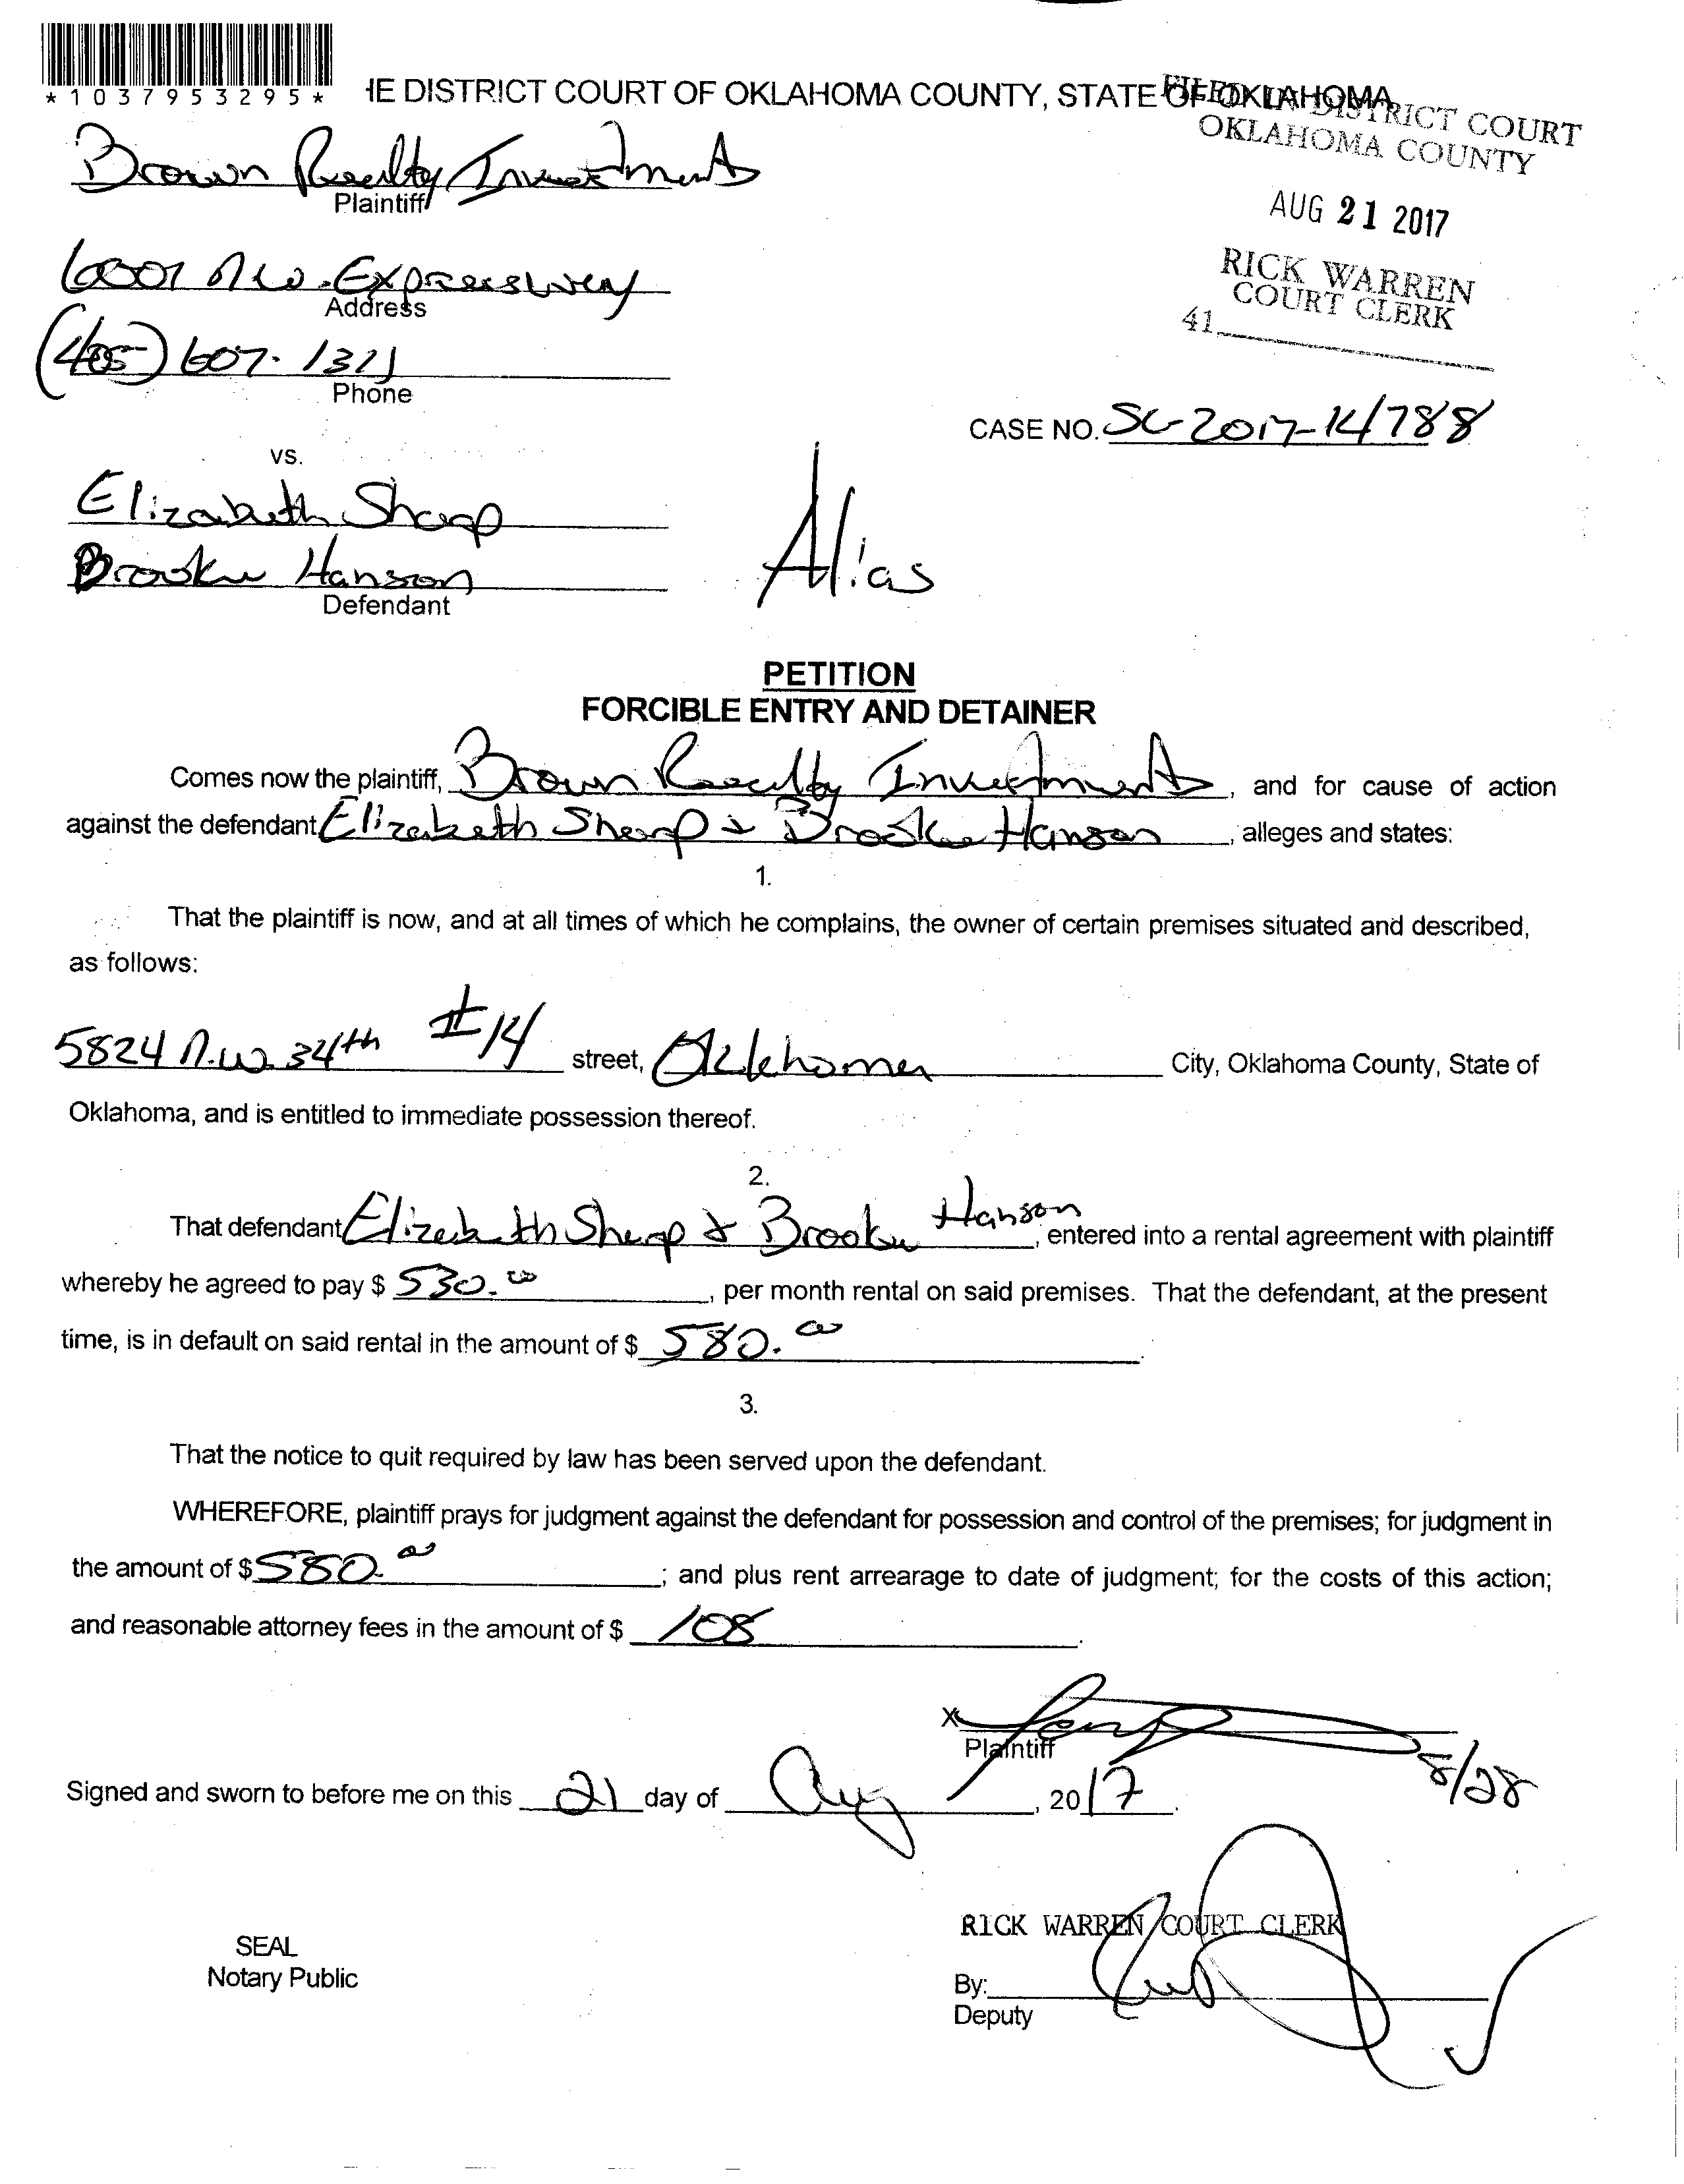 *1037953295*
HE DISTRICT COURT OF OKLAHOMA COUNTY, STATE OF OKLAHOMA
FILED IN DISTRICT COURT
OKLAHOMA COUNTY
AUG 21 2017
RICK WARREN
COURT CLERK
41
Brown Realty Investments
Plaintiff
6001 N.W. Expressway
Address
(405) 607-1321
Phone
CASE NO. SC-2017-14788
vs.
Elizabeth Sharp
Brooke Hanson
Defendant
Alias
PETITION
FORCIBLE ENTRY AND DETAINER
Comes now the plaintiff, Brown Realty Investments, and for cause of action
against the defendant Elizabeth Sharp & Brooke Hanson, alleges and states:
1.
That the plaintiff is now, and at all times of which he complains, the owner of certain premises situated and described,
as follows:
5824 N.W. 34th #14 street, Oklahoma City, Oklahoma County, State of
Oklahoma, and is entitled to immediate possession thereof.
2.
That defendant Elizabeth Sharp & Brooke Hanson, entered into a rental agreement with plaintiff
whereby he agreed to pay $ 530.00, per month rental on said premises. That the defendant, at the present
time, is in default on said rental in the amount of $ 580.00.
3.
That the notice to quit required by law has been served upon the defendant.
WHEREFORE, plaintiff prays for judgment against the defendant for possession and control of the premises; for judgment in
the amount of $ 580.00; and plus rent arrearage to date of judgment; for the costs of this action;
and reasonable attorney fees in the amount of $ 108.
X
Plaintiff
8/28
Signed and sworn to before me on this 21 day of Aug, 2017.
RICK WARREN COURT CLERK
SEAL
Notary Public
By:
Deputy